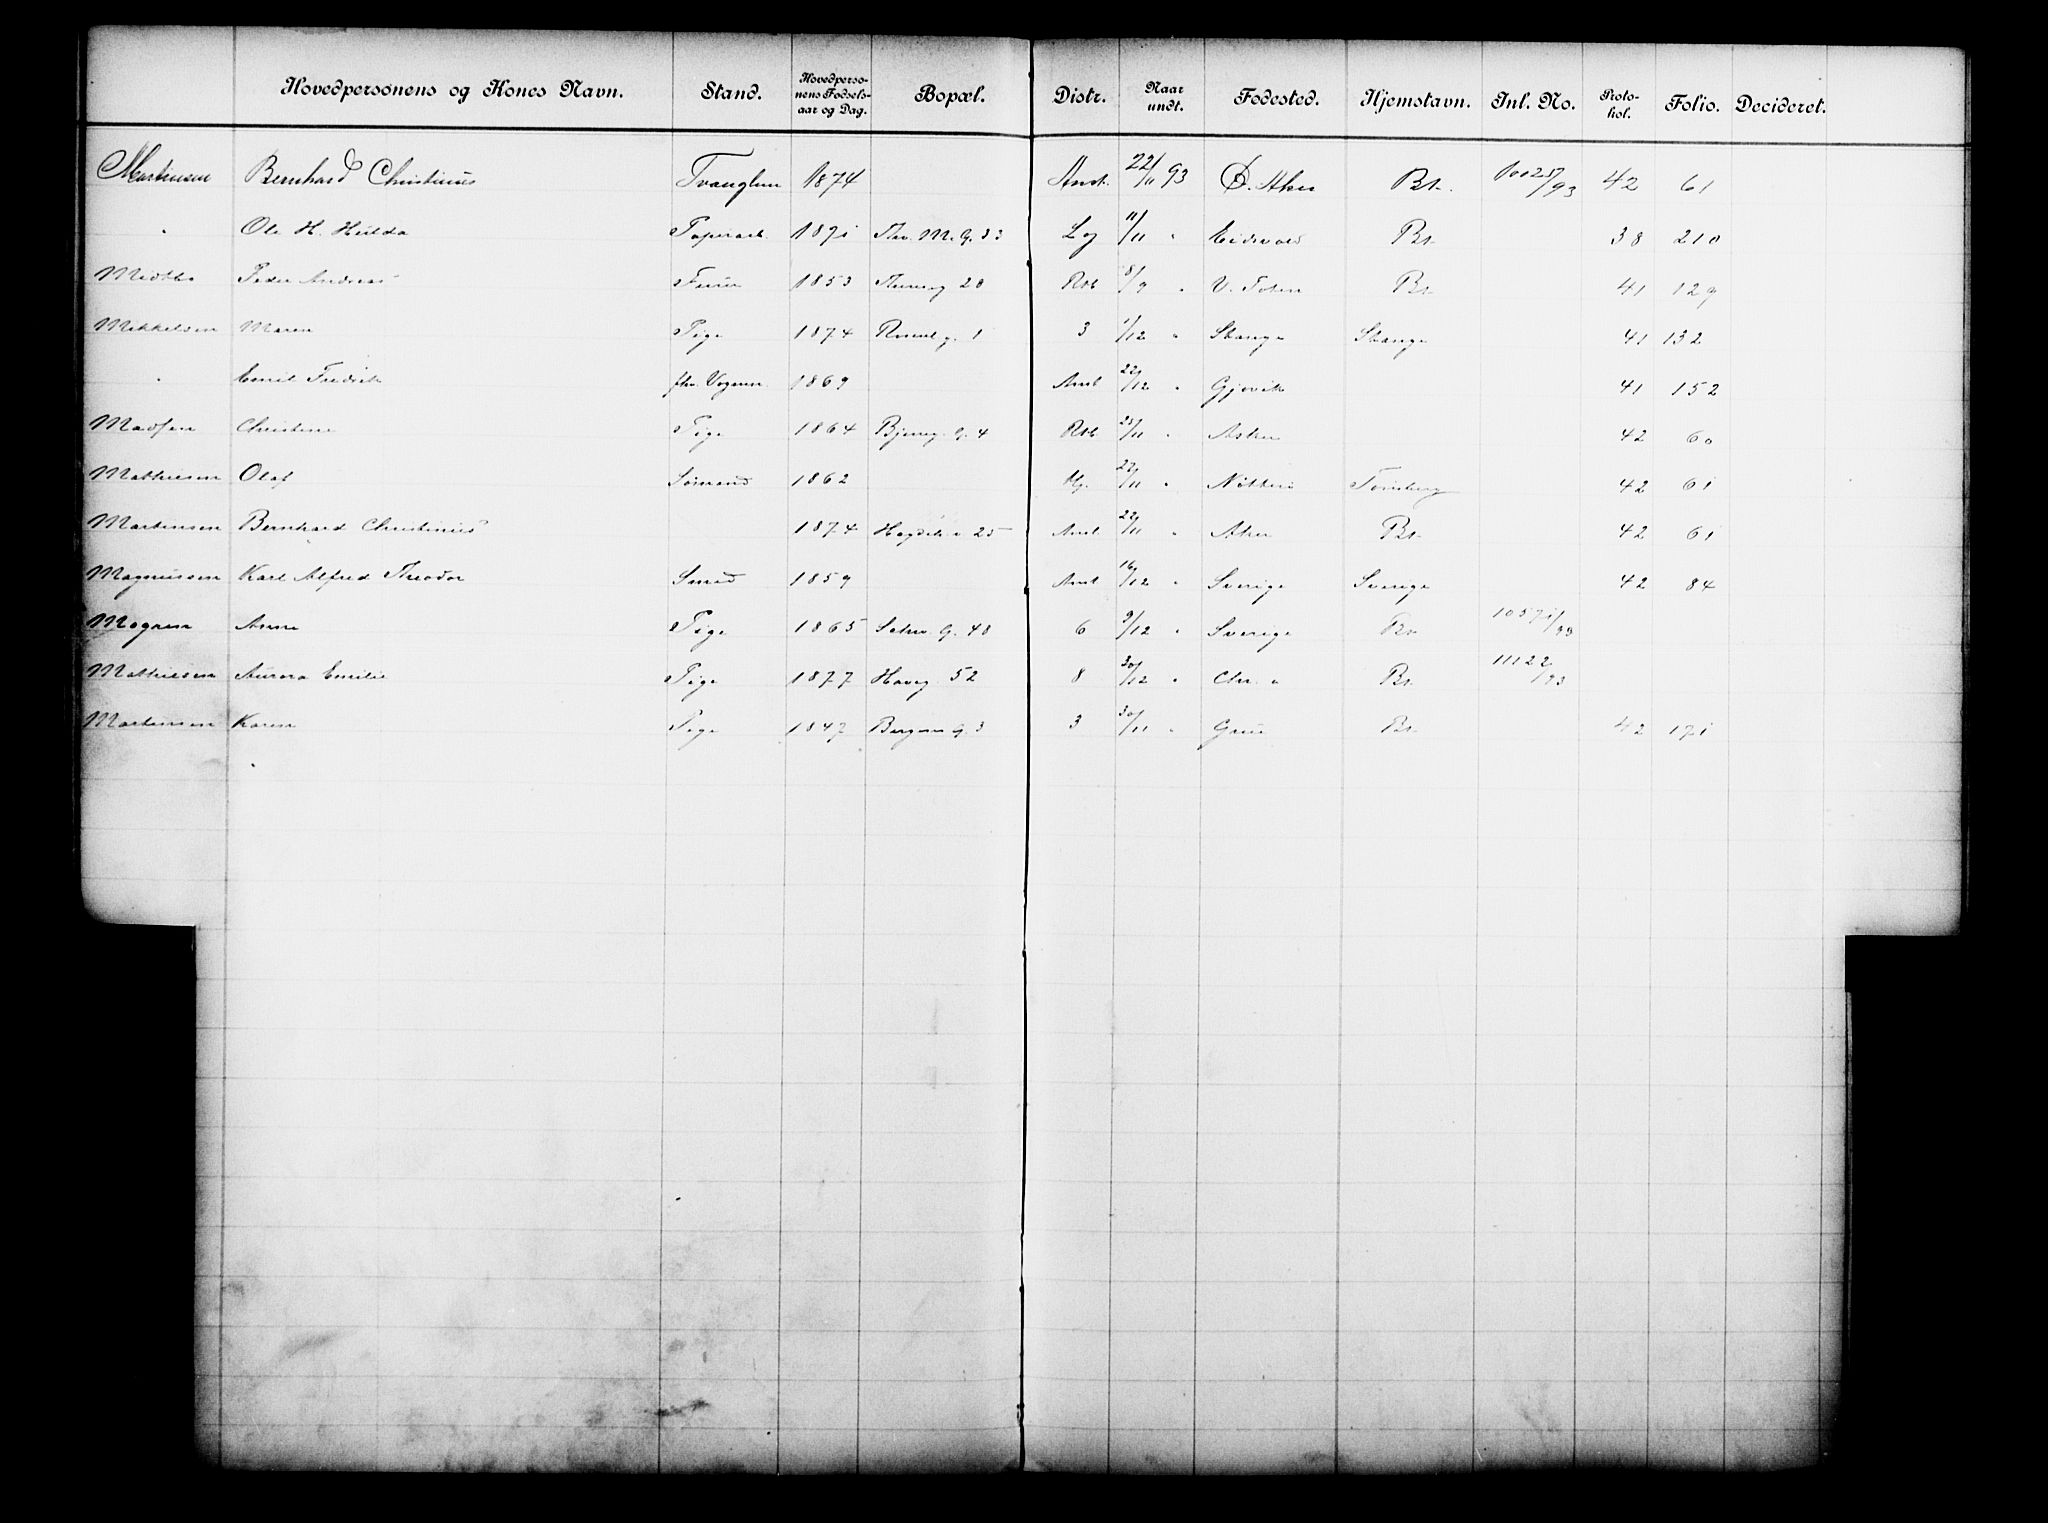 Hovedpersonens og Kones Navn. Stand. Hovedperso-nens Fødsels-aar og Dag. Bopæl. Distr. Naar undt. Fødested. Hjemstavn. Inl. No. Proto-kol. Folio. Decideret.
Martinsen Bernhard Christinius 1874 Anst. 22/11 93 Ø. Aker Bt. 42 61
" Ole H. Hulda Papirarb. 1871 Thv. M. G. 33 Lg 11/11 " Eidsvold Bt. 38 210
Midtbø Peder Andreas 1853 28 Rtb 8/9 " V. Toten Bt. 41 129
Mikkelsen Maren Pige 1874 1 3 1/12 " Stange Stange 41 132
" Emil Fredrik fhv. Vognm. 1869 Anst 22/12 " Gjøvik 41 152
Madsen Christine Pige 1864 G. 4 Rtb 25/11 " Asker 42 60
Mathiesen Olaf Sømand 1862 22/11 " Nøtterø Tønsberg 42 61
Martinsen Bernhard Christinius 1874 25 Anst 22/11 " Aker Bt. 42 61
Magnussen Karl Alfred Theodor Smed 1859 Anst 16/12 " Sverige Sverige 42 84
Mognen Anne Pige 1865 Schw. G. 48 6 9/12 " Sverige Bt. 10571/93
Mathiesen Aurora Emilie Pige 1877 Haveg. 52 8 30/12 " Chr. a Bt. 11122/93
Martinsen Karen Pige 1847 Bergens G. 3 3 30/11 " Grue Bt. 42 171